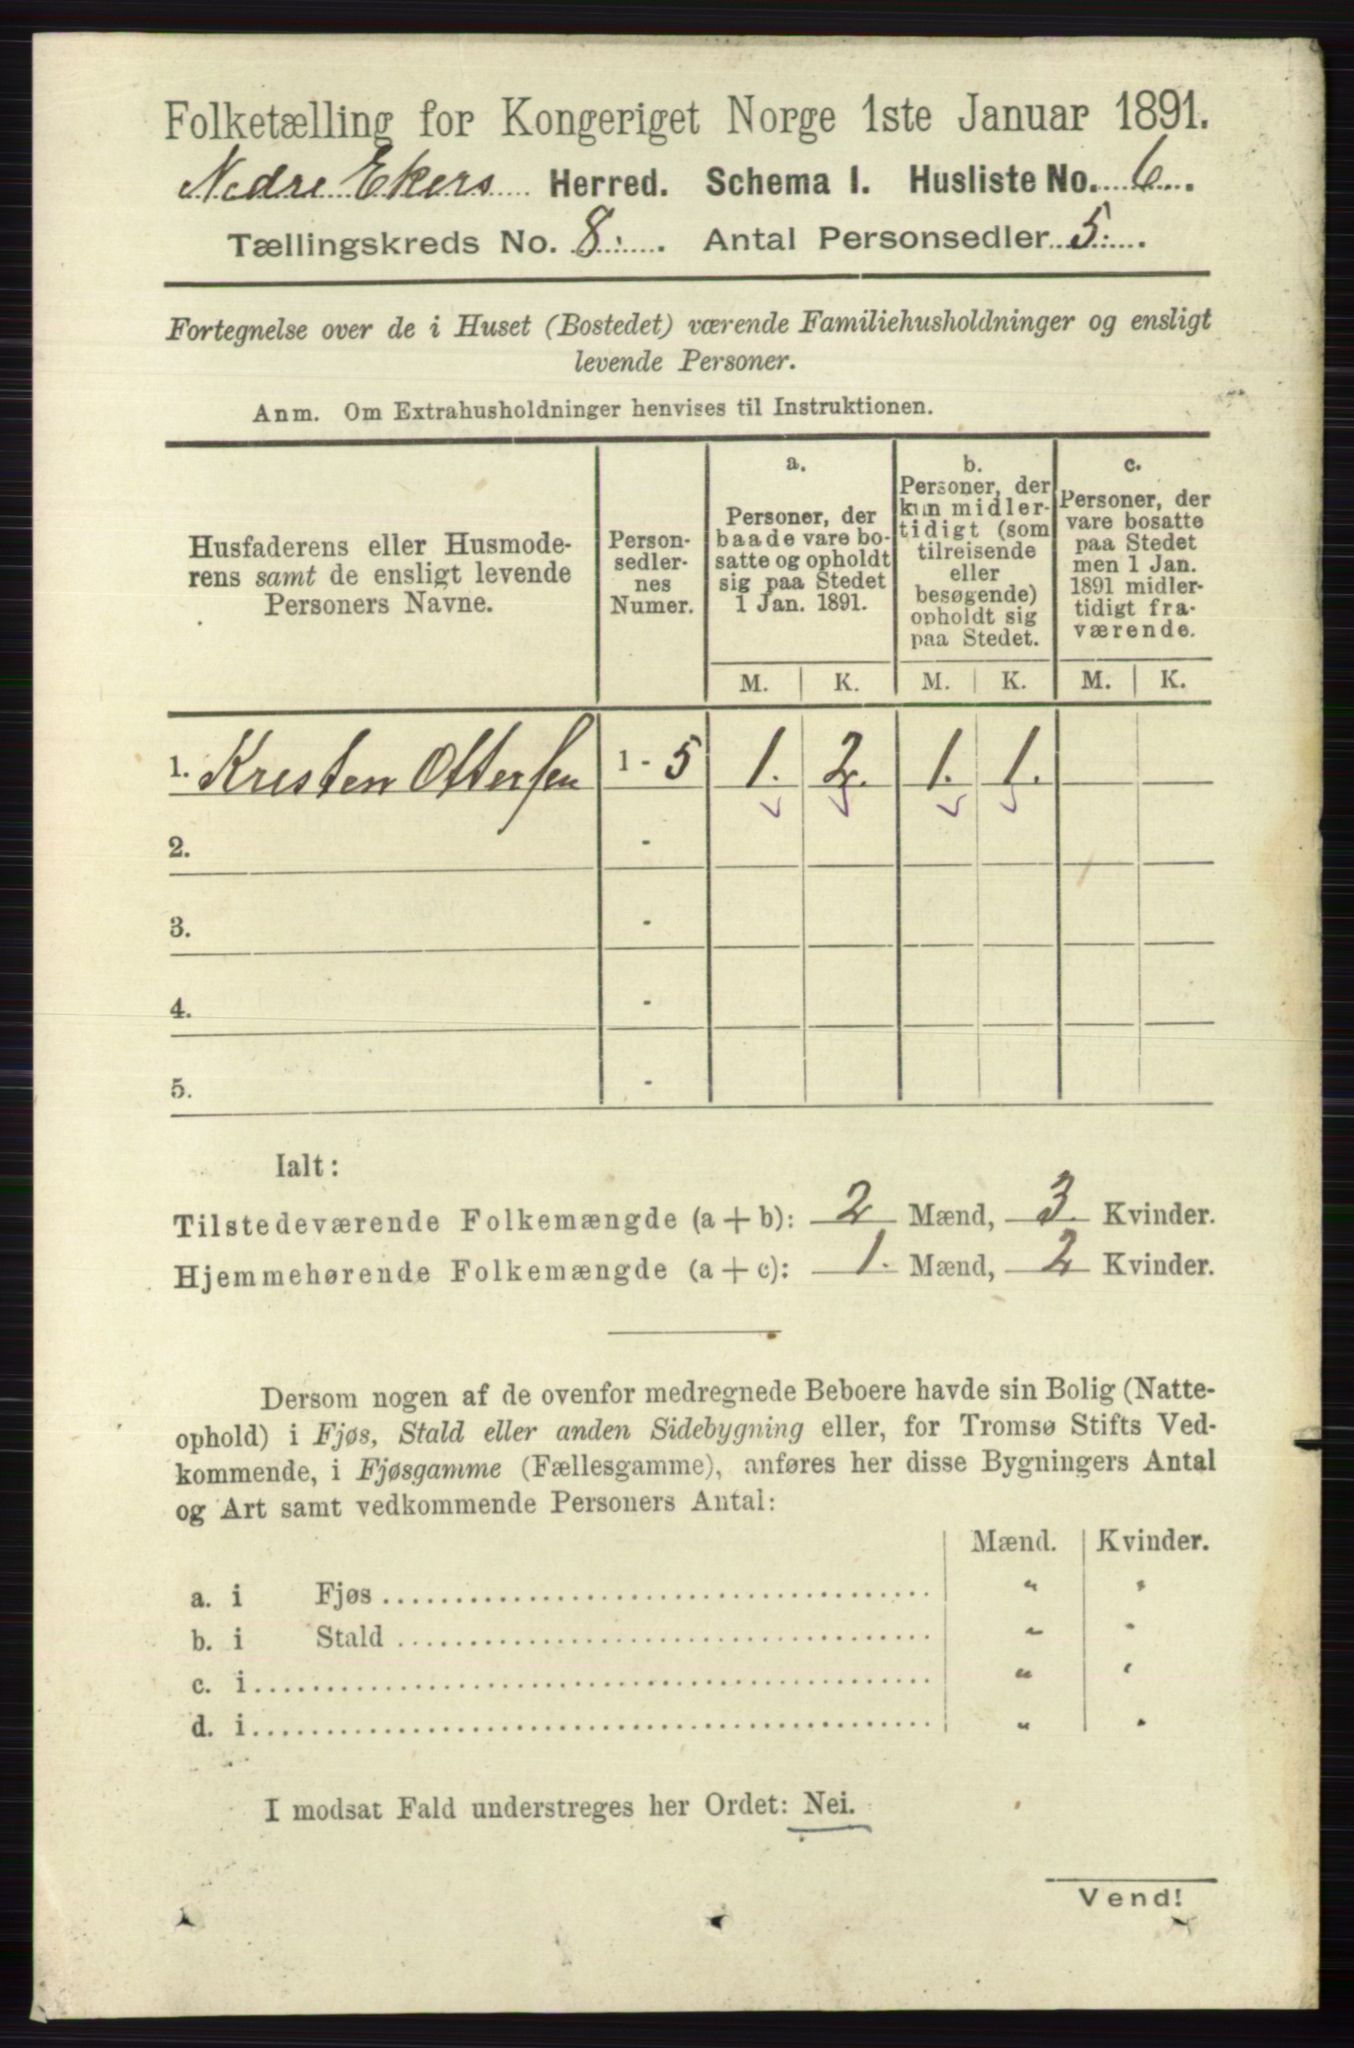 Folketælling for Kongeriget Norge 1ste Januar 1891.
Nedre Ekers Herred. Schema I. Husliste No. 6.
Tællingskreds No. 8. Antal Personsedler 5.
Fortegnelse over de i Huset (Bostedet) værende Familiehusholdninger og ensligt
levende Personer.
Anm. Om Extrahusholdninger henvises til Instruktionen.
Husfaderens eller Husmode-
rens samt de ensligt levende
Personers Navne.
Person-
sedler-
nes
Numer.
a.
Personer, der
baade vare bo-
satte og opholdt
sig paa Stedet
1 Jan. 1891.
b.
Personer, der
kun midler-
tidigt (som
tilreisende
eller
besøgende)
opholdt sig
paa Stedet.
c.
Personer, der
vare bosatte
paa Stedet
men 1 Jan.
1891 midler-
tidigt fra-
værende.
M. K. M. K. M. K.
1. Kristen Ottersen 1 - 5 1. 2. 1. 1.
2. -
3. -
4. -
5. -
Ialt:
Tilstedeværende Folkemængde (a + b): 2 Mænd, 3. Kvinder.
Hjemmehørende Folkemængde (a + c): 1. Mænd, 2 Kvinder.
Dersom nogen af de ovenfor medregnede Beboere havde sin Bolig (Natte-
ophold) i Fjøs, Stald eller anden Sidebygning eller, for Tromsø Stifts Ved-
kommende, i Fjøsgamme (Fællesgamme), anføres her disse Bygningers Antal
og Art samt vedkommende Personers Antal:
Mænd. Kvinder.
a. i Fjøs " "
b. i Stald " "
c. i " "
d. i " "
I modsat Fald understreges her Ordet: Nei.
Vend!